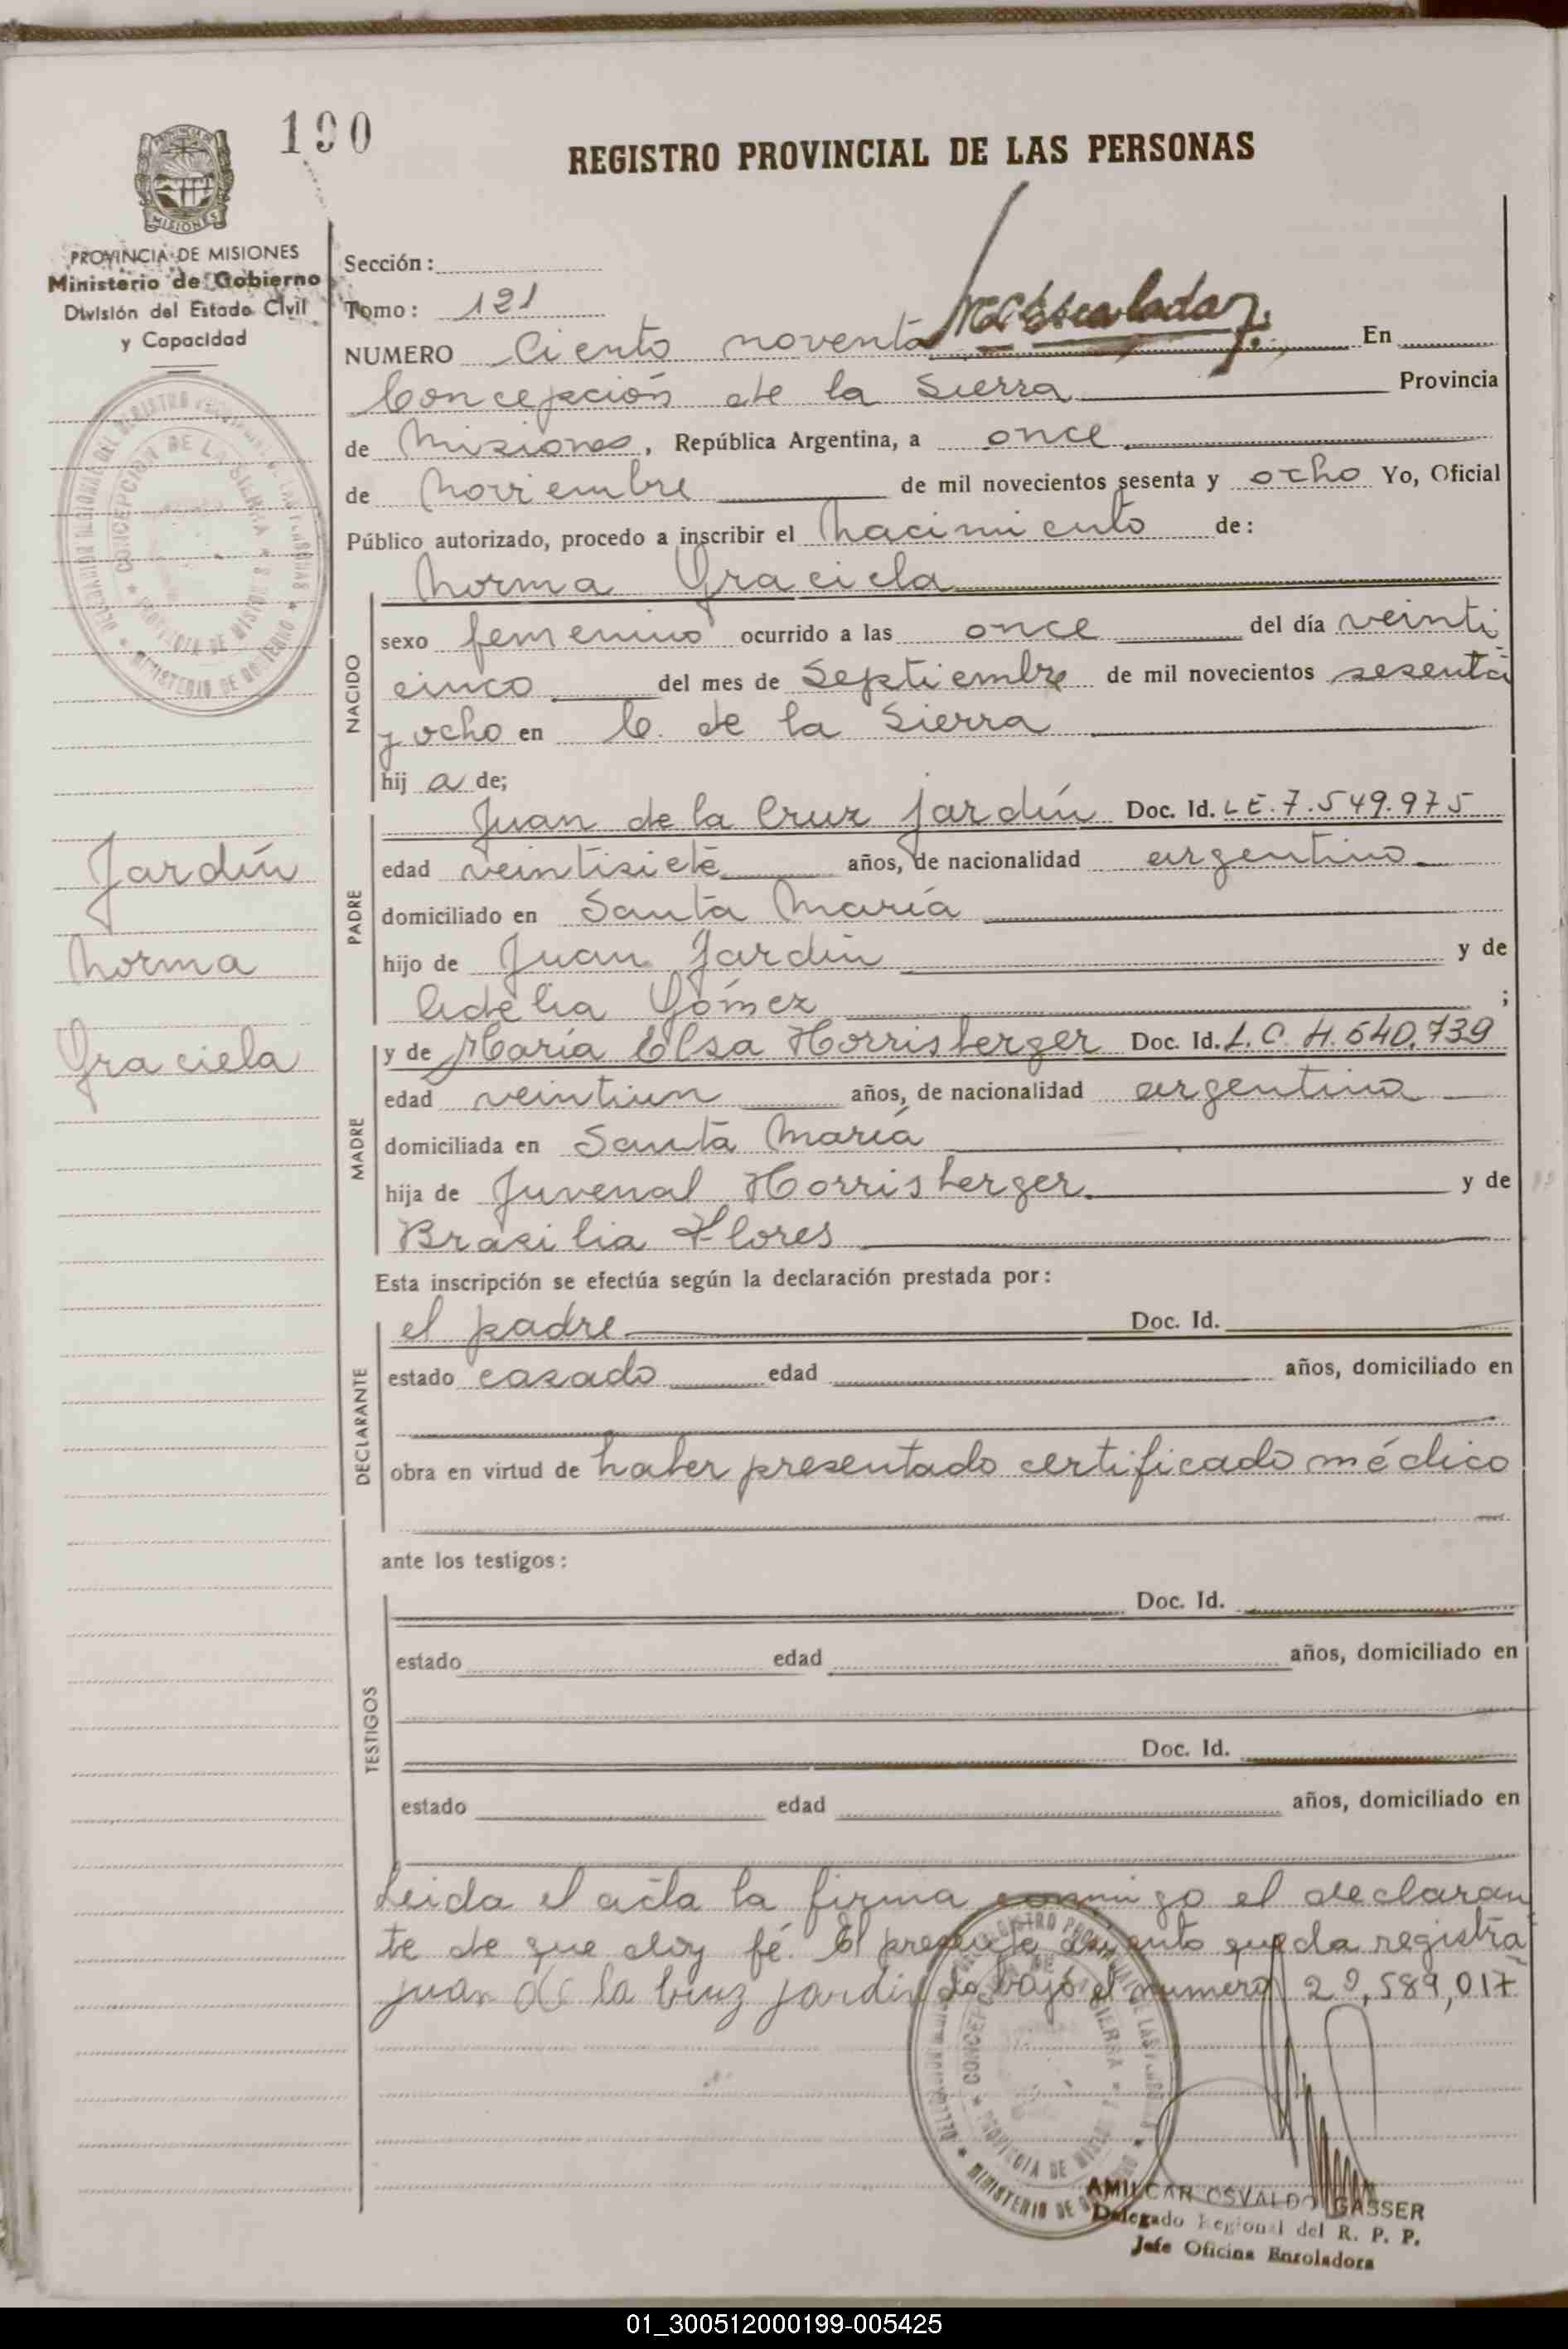 190
REGISTRO PROVINCIAL DE LAS PERSONAS
MISIONES
PROVINCIA DE MISIONES
Ministerio de Gobierno
División del Estado Civil
y Capacidad
Sección:
Tomo: 121
NUMERO Ciento noventa En
Concepción de la Sierra Provincia
de Misiones, República Argentina, a once
de Noviembre de mil novecientos sesenta y ocho Yo, Oficial
Público autorizado, procedo a inscribir el Nacimiento de:
Norma Graciela
NACIDO
sexo femenino ocurrido a las once del día veinti
cinco del mes de Septiembre de mil novecientos sesenta
y ocho en C. de la Sierra
hij a de;
PADRE
Juan de la Cruz Jardín Doc. Id. LE. 7.549.975
edad veintisiete años, de nacionalidad argentino
domiciliado en Santa María
hijo de Juan Jardín y de
Adelia Gómez ;
MADRE
y de María Elsa Horrisberger Doc. Id. L.C. 4.640.739
edad veintiun años, de nacionalidad argentina
domiciliada en Santa María
hija de Juvenal Horrisberger y de
Brasilia Flores
Jardín
Norma
Graciela
Esta inscripción se efectúa según la declaración prestada por:
DECLARANTE
el padre Doc. Id.
estado casado edad años, domiciliado en
obra en virtud de haber presentado certificado médico
ante los testigos:
TESTIGOS
Doc. Id.
estado edad años, domiciliado en
Doc. Id.
estado edad años, domiciliado en
Leida el acta la firma conmigo el declaran
te de que doy fé. El presente asiento queda registra
do bajo el numero 20,589,017
Juan de la Cruz Jardin
CONCEPCION DE LA SIERRA
PROVINCIA DE MISIONES
MINISTERIO DE GOBIERNO
AMILCAR OSVALDO GASSER
Delegado Regional del R. P. P.
Jefe Oficina Enroladora
01_300512000199-005425